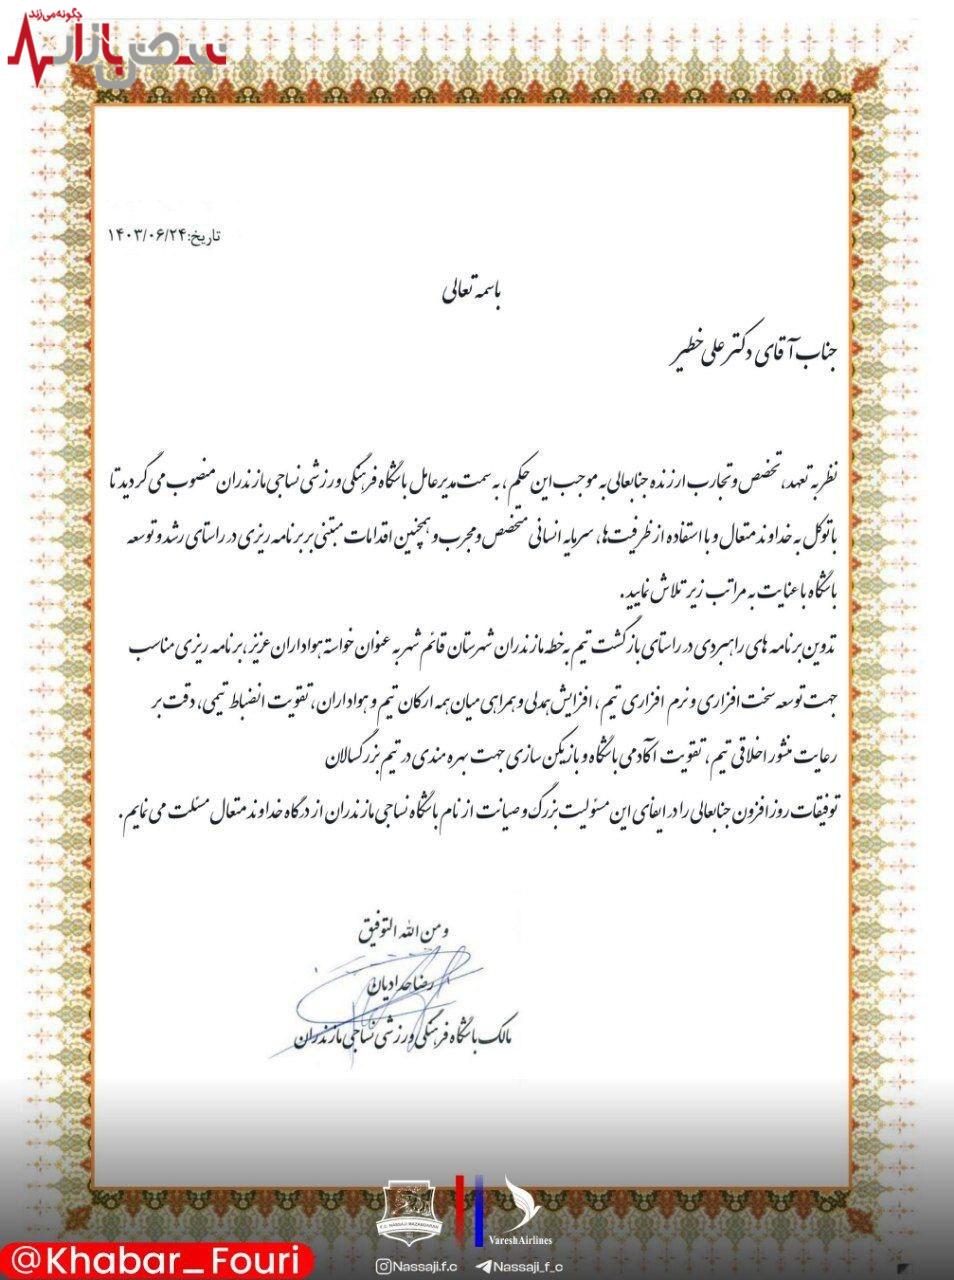 چگونه می‌زند
نبض بازار
تاریخ:۱۴۰۳/۰۶/۲۴
باسمه تعالی
جناب آقای دکتر علی خطیر
نظر به تعهد، تخصص و تجارب ارزنده جنابعالی به موجب این حکم، به سمت مدیرعامل باشگاه فرهنگی ورزشی نساجی مازندران منصوب می گردید تا
با توکل به خداوند متعال و با استفاده از ظرفیت ها، سرمایه انسانی متخصص و مجرب و همچنین اقدامات مبتنی بر برنامه ریزی در راستای رشد و توسعه
باشگاه با عنایت به مراتب زیر تلاش نمایید.
تدوین برنامه های راهبردی در راستای بازگشت تیم به خطه مازندران شهرستان قائم شهر به عنوان خواسته هواداران عزیز، برنامه ریزی مناسب
جهت توسعه سخت افزاری و نرم افزاری تیم، افزایش همدلی و همراهی میان همه ارکان تیم و هواداران، تقویت انضباط تیمی، دقت بر
رعایت منشور اخلاقی تیم، تقویت آکادمی باشگاه و بازیکن سازی جهت بهره مندی در تیم بزرگسالان
توفیقات روز افزون جنابعالی را در ایفای این مسئولیت بزرگ و صیانت از نام باشگاه نساجی مازندران از درگاه خداوند متعال مسئلت می نمایم.
و من الله التوفیق
رضا حدادیان
مالک باشگاه فرهنگی ورزشی نساجی مازندران
F.C. NASSAJI MAZANDARAN
VareshAirlines
@Khabar_Fouri
Nassaji.f.c
Nassaji_f_c